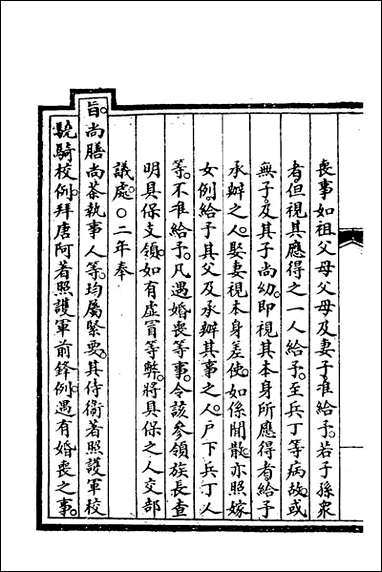 喪事如祖父母父母及妻子准給予。若子孫衆
者但視其應得之一人給予。至兵丁等病故。或
無子及其子尚幼。即視其本身所應得者給予
承辦之人。娶妻視本身差使。如係閒散亦照嫁
女例。給予其父及承辦其事之人。户下兵丁人
等。不准給予。凡遇婚喪等事。令該參領族長查
明具保支領。如有虛冒等弊。將具保之人交部
議處。〇二年奉
旨。尚膳尚茶執事人等。均屬緊要。其侍衞著照護軍校
驍騎校例。拜唐阿著照護軍前鋒例。遇有婚喪之事。